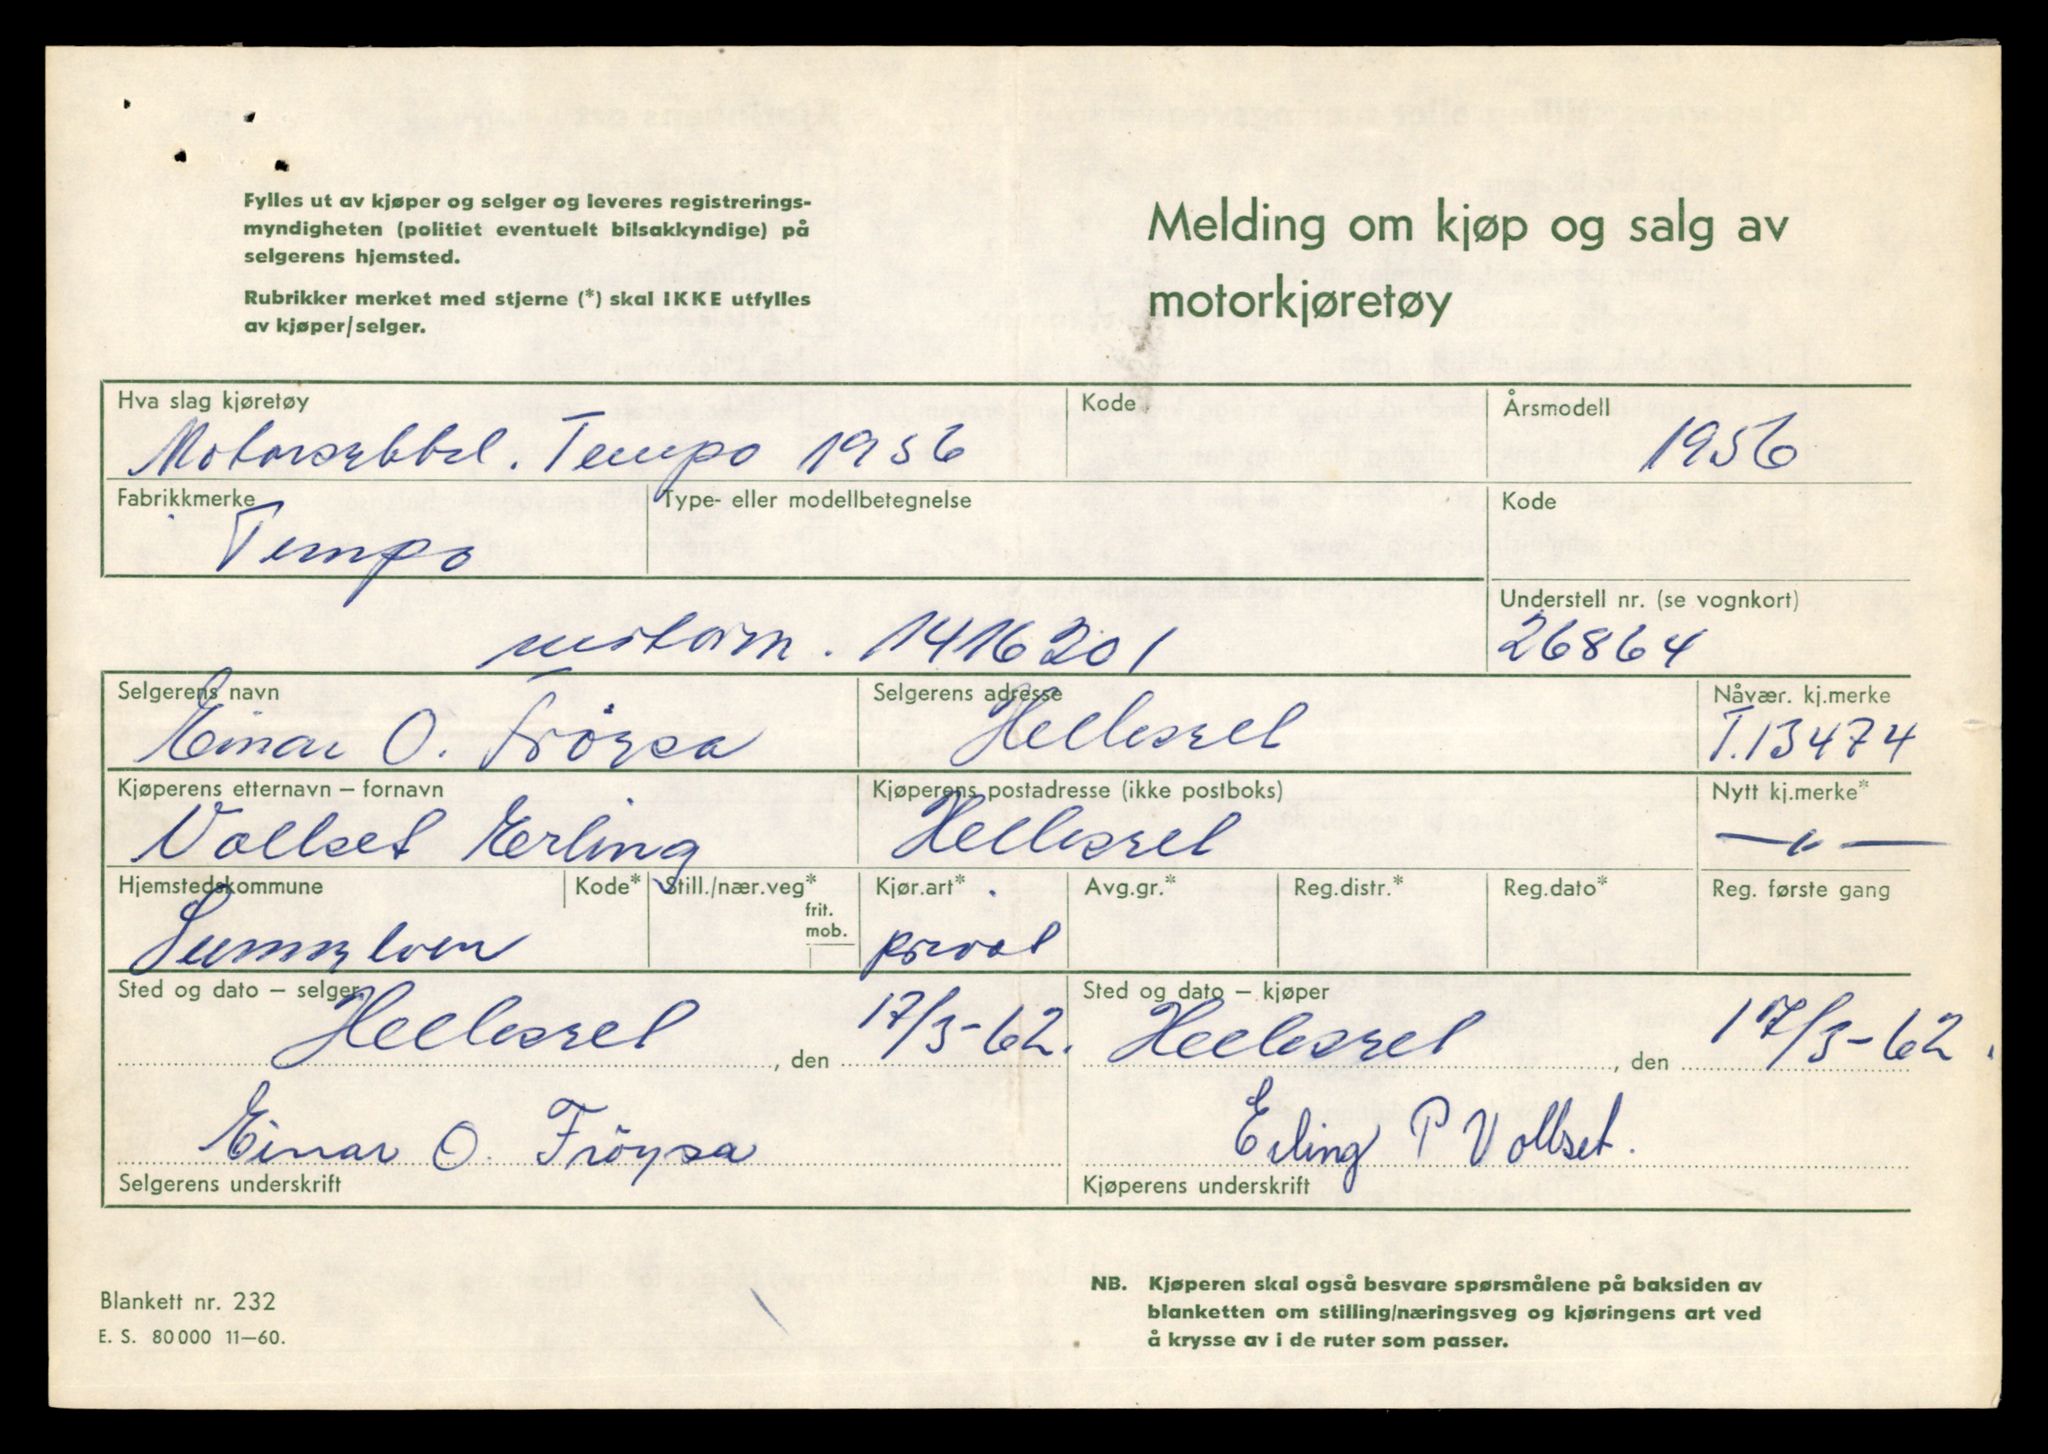 Fylles ut av kjøper og selger og leveres registrerings-
myndigheten (politiet eventuelt bilsakkyndige) på
selgerens hjemsted.
Rubrikker merket med stjerne (*) skal IKKE utfylles
av kjøper/selger.
Melding om kjøp og salg av
motorkjøretøy
Hva slag kjøretøy
Motorsykkel. Tempo 1956
Kode
Årsmodell
1956
Fabrikkmerke
Tempo
Type- eller modellbetegnelse
Kode
1416201
Understell nr. (se vognkort)
26864
Selgerens navn
Einar O. Fröysa
Selgerens adresse
Hellesylt
Nåvær. kj.merke
T.13474
Kjøperens etternavn – fornavn
Vollset Erling
Kjøperens postadresse (ikke postboks)
Hellesylt
Nytt kj.merke*
—〃—
Hjemstedskommune
Sunnylven
Kode*
Still./nær.veg*
frit.
mob.
Kjør.art*
privat
Avg.gr.*
Reg.distr.*
Reg.dato*
Reg. første gang
Sted og dato – selger
Hellesylt, den 17/3-62.
Sted og dato – kjøper
Hellesylt, den 17/3-62.
Einar O. Fröysa
Selgerens underskrift
Erling P Vollset.
Kjøperens underskrift
Blankett nr. 232
E. S. 80000 11–60.
NB. Kjøperen skal også besvare spørsmålene på baksiden av
blanketten om stilling/næringsveg og kjøringens art ved
å krysse av i de ruter som passer.